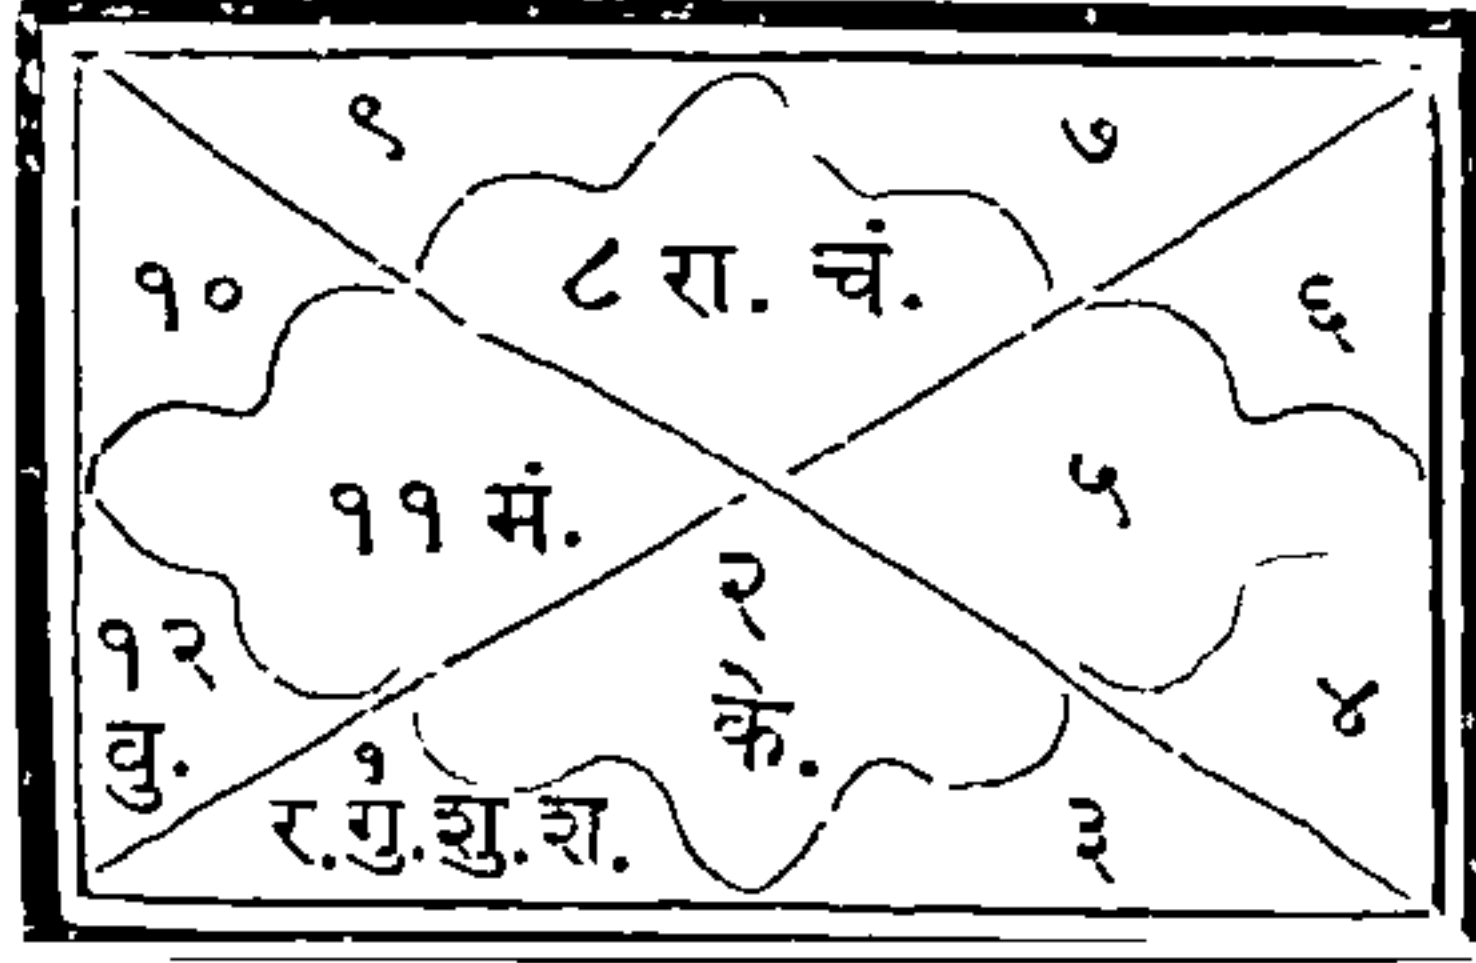 ९ ७
१० ८ रा. चं. ६
११ मं. ५
२
१२ के. ४
वु. १
र.गु.शु.श. ३